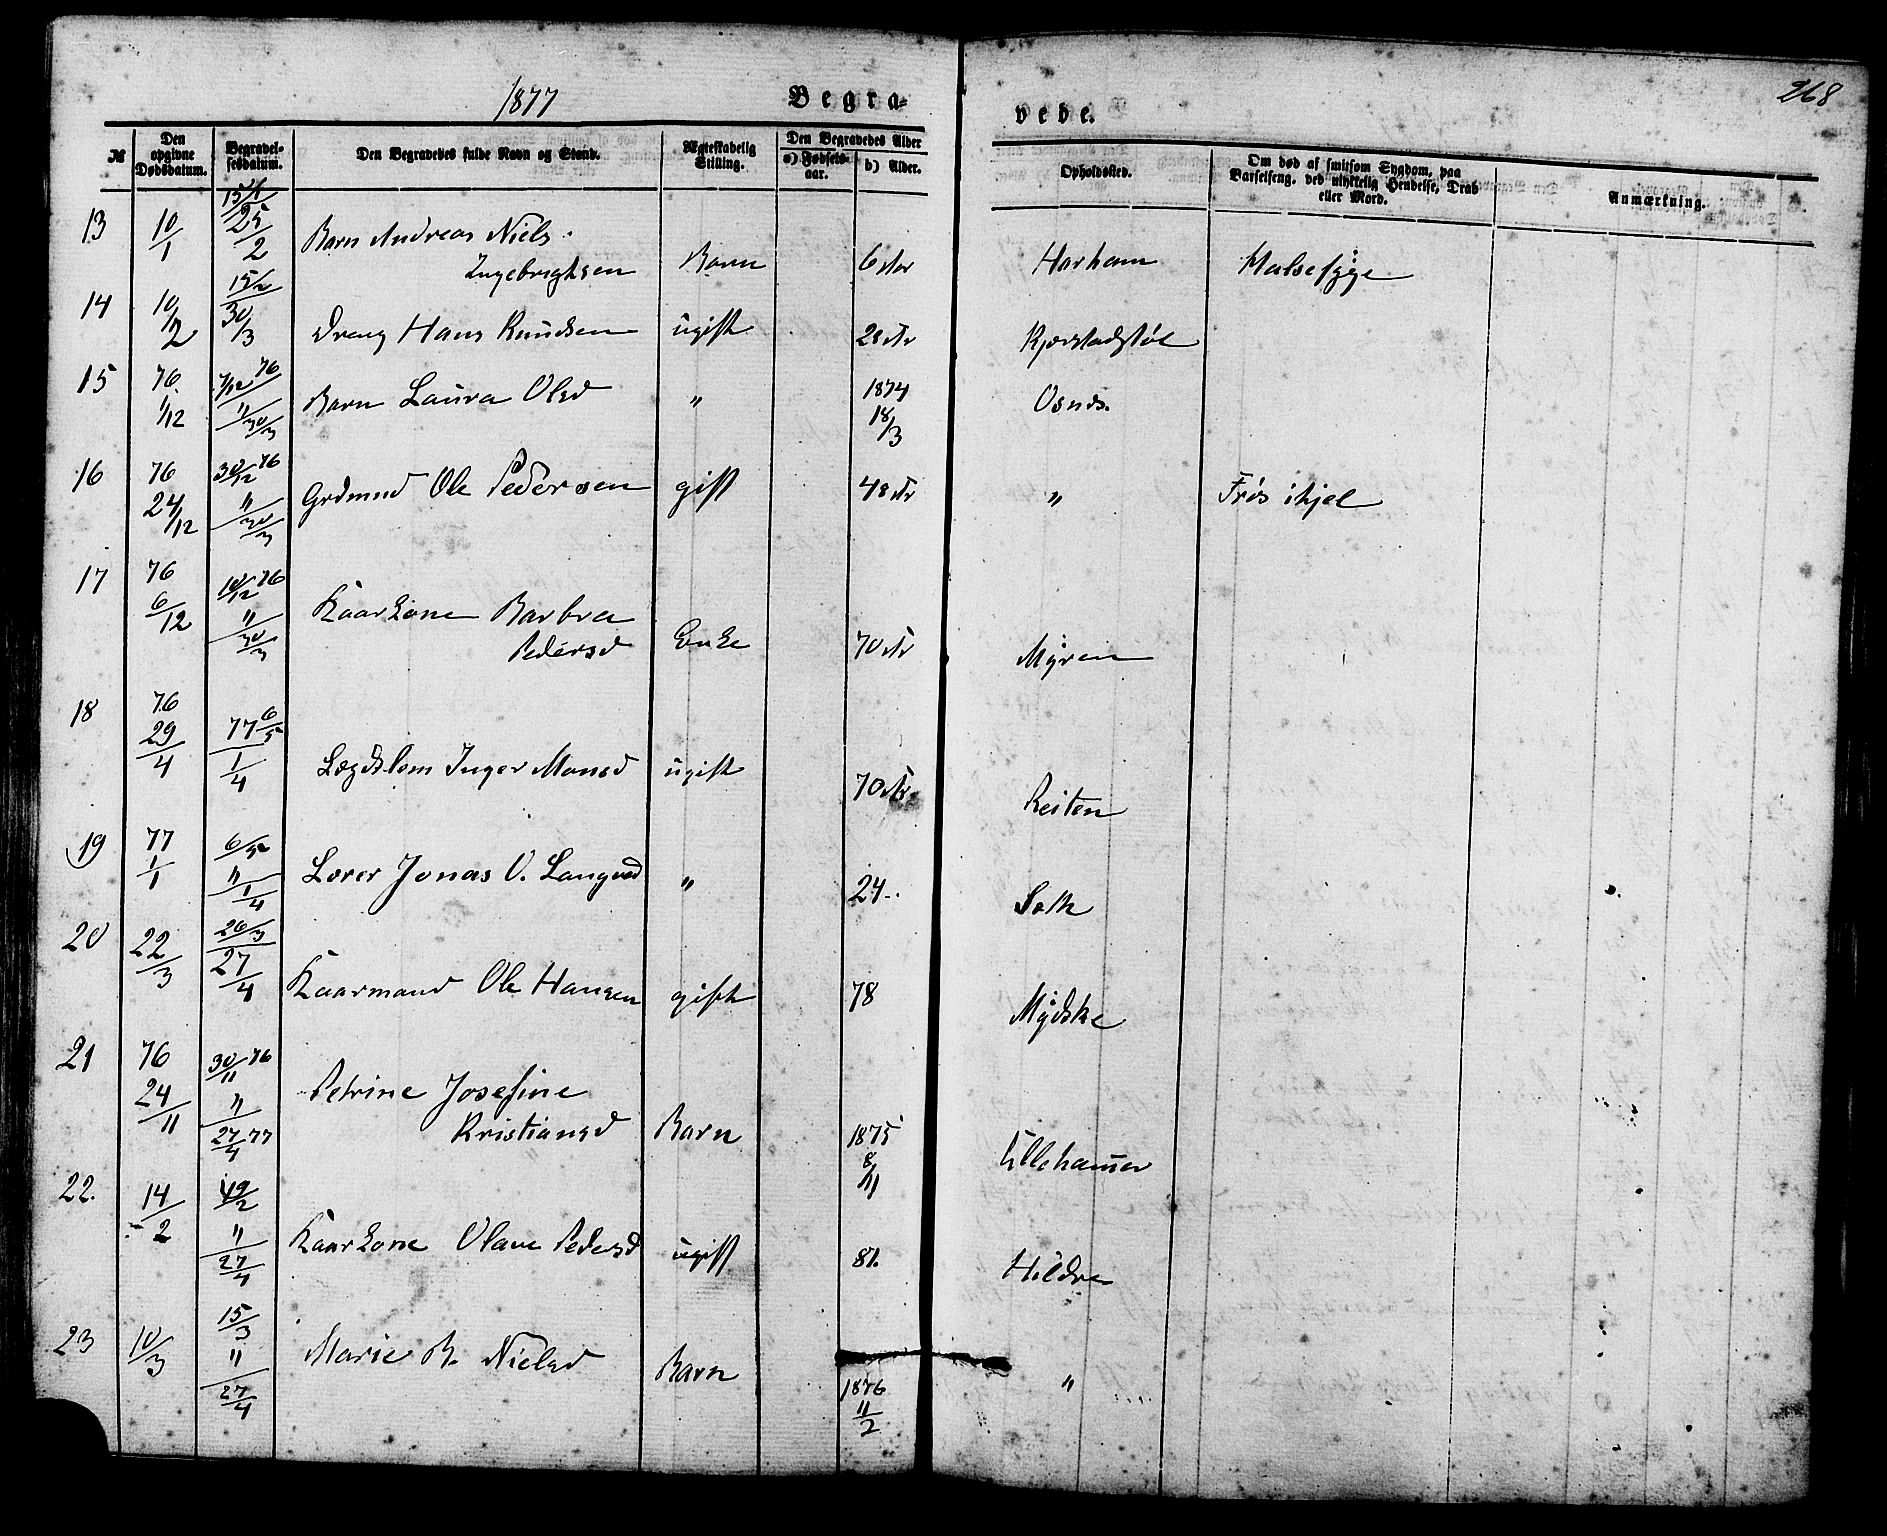 1877 Begra- vede. 268
№
Den opgivne Dødsdatum.
Begravelsesdatum.
Den Begravedes fulde Navn og Stand.
Ægteskabelig Stilling.
Den Begravedes Alder
a) Fødsels-aar.
b) Alder.
Opholdssted.
Om død af smitsom Sygdom, paa Barselseng, ved ulykkelig Hendelse, Drab eller Mord.
Anmærkning.
13 10/1 15/1 25/2 Barn Andreas Niels
Ingebrightsen Barn 6 Ar Harham Halsesyge
14 10/2 15/2 30/3 Dreng Hans Knudsen ugift 28 Ar Kjerstadstøl
15 76 1/12 7/12 76 " 30/3 Barn Laura Olsd " 1874 18/3 Osnes.
16 76 24/12 30/12 76 " 30/3 Grdmnd Ole Pedersen gift 48 Ar " Frøs ihjel
17 76 6/12 10/12 76 " 30/3 Kaarkone Barbra
Pedersd Enke 70 Ar Myren
18 76 29/4 77 6/5 1/4 Lægdslem Inger Monsd ugift 70 Ar Reiten
19 77 1/1 6/5 " 1/4 Lærer Jonas O. Langved " 24 Søth
20 22/3 26/3 27/4 Kaarmand Ole Hansen gift 78 Mydske
21 76 24/11 30/11 76 " 27/4 77 Petrine Josefine
Kristiansd Barn 1875 8/11 Ullehammer
22. 14/2 " 27/4 Kaarkone Olave Pedersd ugift 81. Hildre
23 10/3 15/3 " 27/4 Marie B. Nielsd Barn 1876 11/2 "